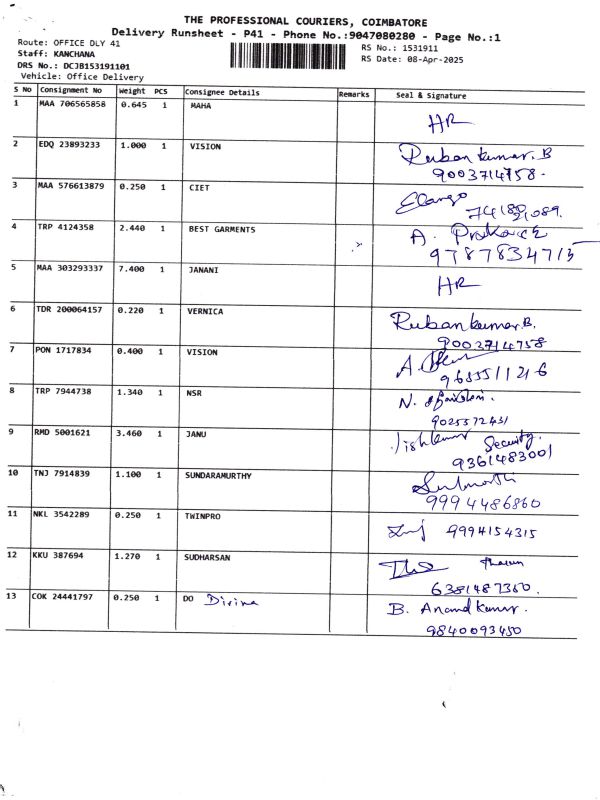 THE PROFESSIONAL COURIERS, COIMBATORE
Delivery Runsheet - P41 - Phone No.:9047080280 - Page No.:1
Route: OFFICE DLY 41
RS No.: 1531911
Staff: KANCHANA
RS Date: 08-Apr-2025
DRS No.: DCJB153191101
Vehicle: Office Delivery
S No Consignment No Weight PCS Consignee Details Remarks Seal & Signature
1 MAA 706565858 0.645 1 MAHA
HR
2 EDQ 23893233 1.000 1 VISION Ruban kumar. B
9003714758-
3 MAA 576613879 0.250 1 CIET Elango
4 TRP 4124358 2.440 1 BEST GARMENTS A. Prakash
9787834715
5 MAA 303293337 7.400 1 JANANI HR
6 TDR 200064157 0.220 1 VERNICA Ruban kumar. B.
9003714758
7 PON 1717834 0.400 1 VISION A.
9655511216
8 TRP 7944738 1.340 1 NSR N.
9025572431
9 RMD 5001621 3.460 1 JANU Security.
9361483001
10 TNJ 7914839 1.100 1 SUNDARAMURTHY
9994486860
11 NKL 3542289 0.250 1 TWINPRO
9994154315
12 KKU 387694 1.270 1 SUDHARSAN
6381487360.
13 COK 24441797 0.250 1 DO Divina B. Anand Kumar.
9840093450